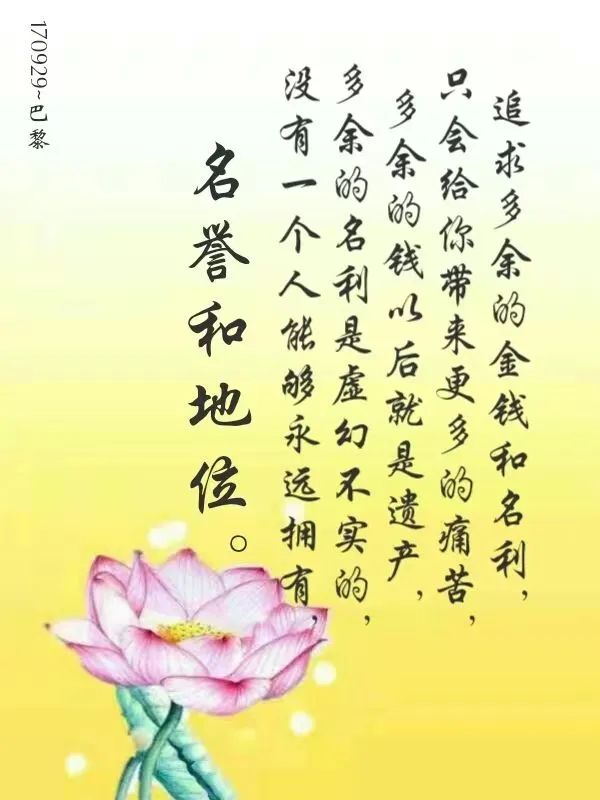 追求多余的金钱和名利，
只会给你带来更多的痛苦，
多余的钱以后就是遗产，
多余的名利是虚幻不实的，
没有一个人能够永远拥有，
名誉和地位。
170929~巴黎